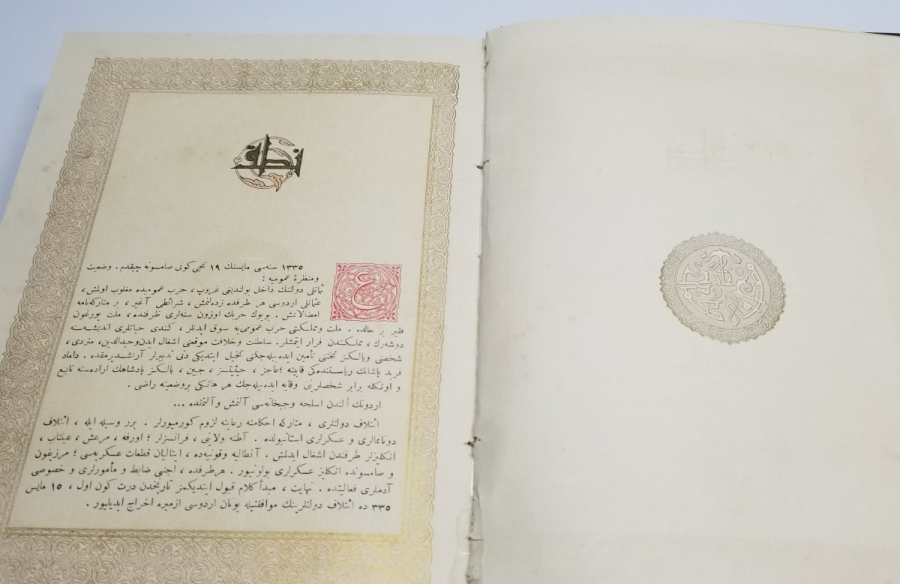 نطق
١٣٣٥ سنه‌سی مایسنك ١٩ نجی كونی صامسونه چیقدم . وضعیت
و منظرهٔ عمومیه :
ع
ثمانلی دولتنك داخل بولندیغی غروپ ، حرب عمومیده مغلوب اولمش ،
عثمانلی اردوسی هر طرفده زده‌لنمش ، شرائطی آغیر ، بر متاركه‌نامه
امضالانمش . بویوك حربك اوزون سنه‌لری ظرفنده ، ملت یورغون
فقیر بر حالده . ملت و مملكتی حرب عمومی‌یه سوق ایدنلر ، كندی حیاتلری اندیشه‌سنه
دوشه‌رك ، مملكتدن فرار ایتمشلر . سلطنت و خلافت موقعنی اشغال ایدن وحیدالدین ، متردی ،
شخصنی و یالكز تختنی تأمین ایده‌بیله‌جكنی تخیل ایتدیكی دنی تدبیرلر آراشدیرمقده . داماد
فرید پاشانك ریاستنده‌كی قابینه ؛ عاجز ، حیثیتسز ، جبین ، یالكز پادشاهك اراده‌سنه تابع
و اونكله برابر شخصلرینی وقایه ایده‌بیله‌جك هر هانكی بر وضعیته راضی .
اردونك الندن اسلحه و جبخانه‌سی آلنمش و آلنمقده ...
ائتلاف دولتلری ، متاركه احكامنه رعایته لزوم كورمیورلر . برر وسیله ایله ، ائتلاف
دونانمالری و عسكرلری استانبولده . آطنه ولایتی ، فرانسزلر ؛ اورفه ، مرعش ، عینتاب ،
انكلیزلر طرفندن اشغال ایدلمش . آنطالیه و قونیه‌ده ، ایتالیان قطعات عسكریه‌سی ؛ مرزیفون
و صامسونده انكلیز عسكرلری بولونیور . هر طرفده ، اجنبی ضابط و مأمورلری و خصوصی
آدملری فعالیتده . نهایت ، مبدأ كلام قبول ایتدیكمز تاریخدن درت كون اول ، ١٥ مایس
٣٣٥ ده ائتلاف دولتلرینك موافقتیله یونان اردوسی ازمیره اخراج ایدیلیور .